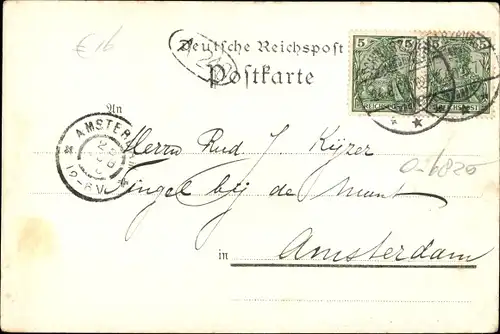 €16
Deutsche Reichspost
Postkarte
5 5
REICHSPOST
An
AMSTER
Herrn Rud J Kijzer
Singel bij de Munt
0-6825
in Amsterdam